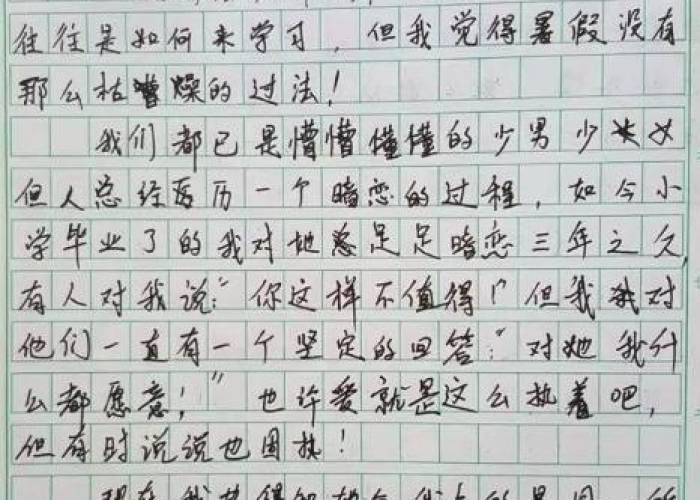 往往是如何来学习，但我觉得暑假没有
那么枯燥的过法！
我们都已是懵懵懂懂的少男少女
但人总经历一个暗恋的过程，如今小
学毕业了的我对她足足暗恋三年之久，
有人对我说：“你这样不值得！”但我对
他们一直有一个坚定的回答：“对她我什
么都愿意！”也许爱就是这么执着吧，
但有时说说也固执！
现在我